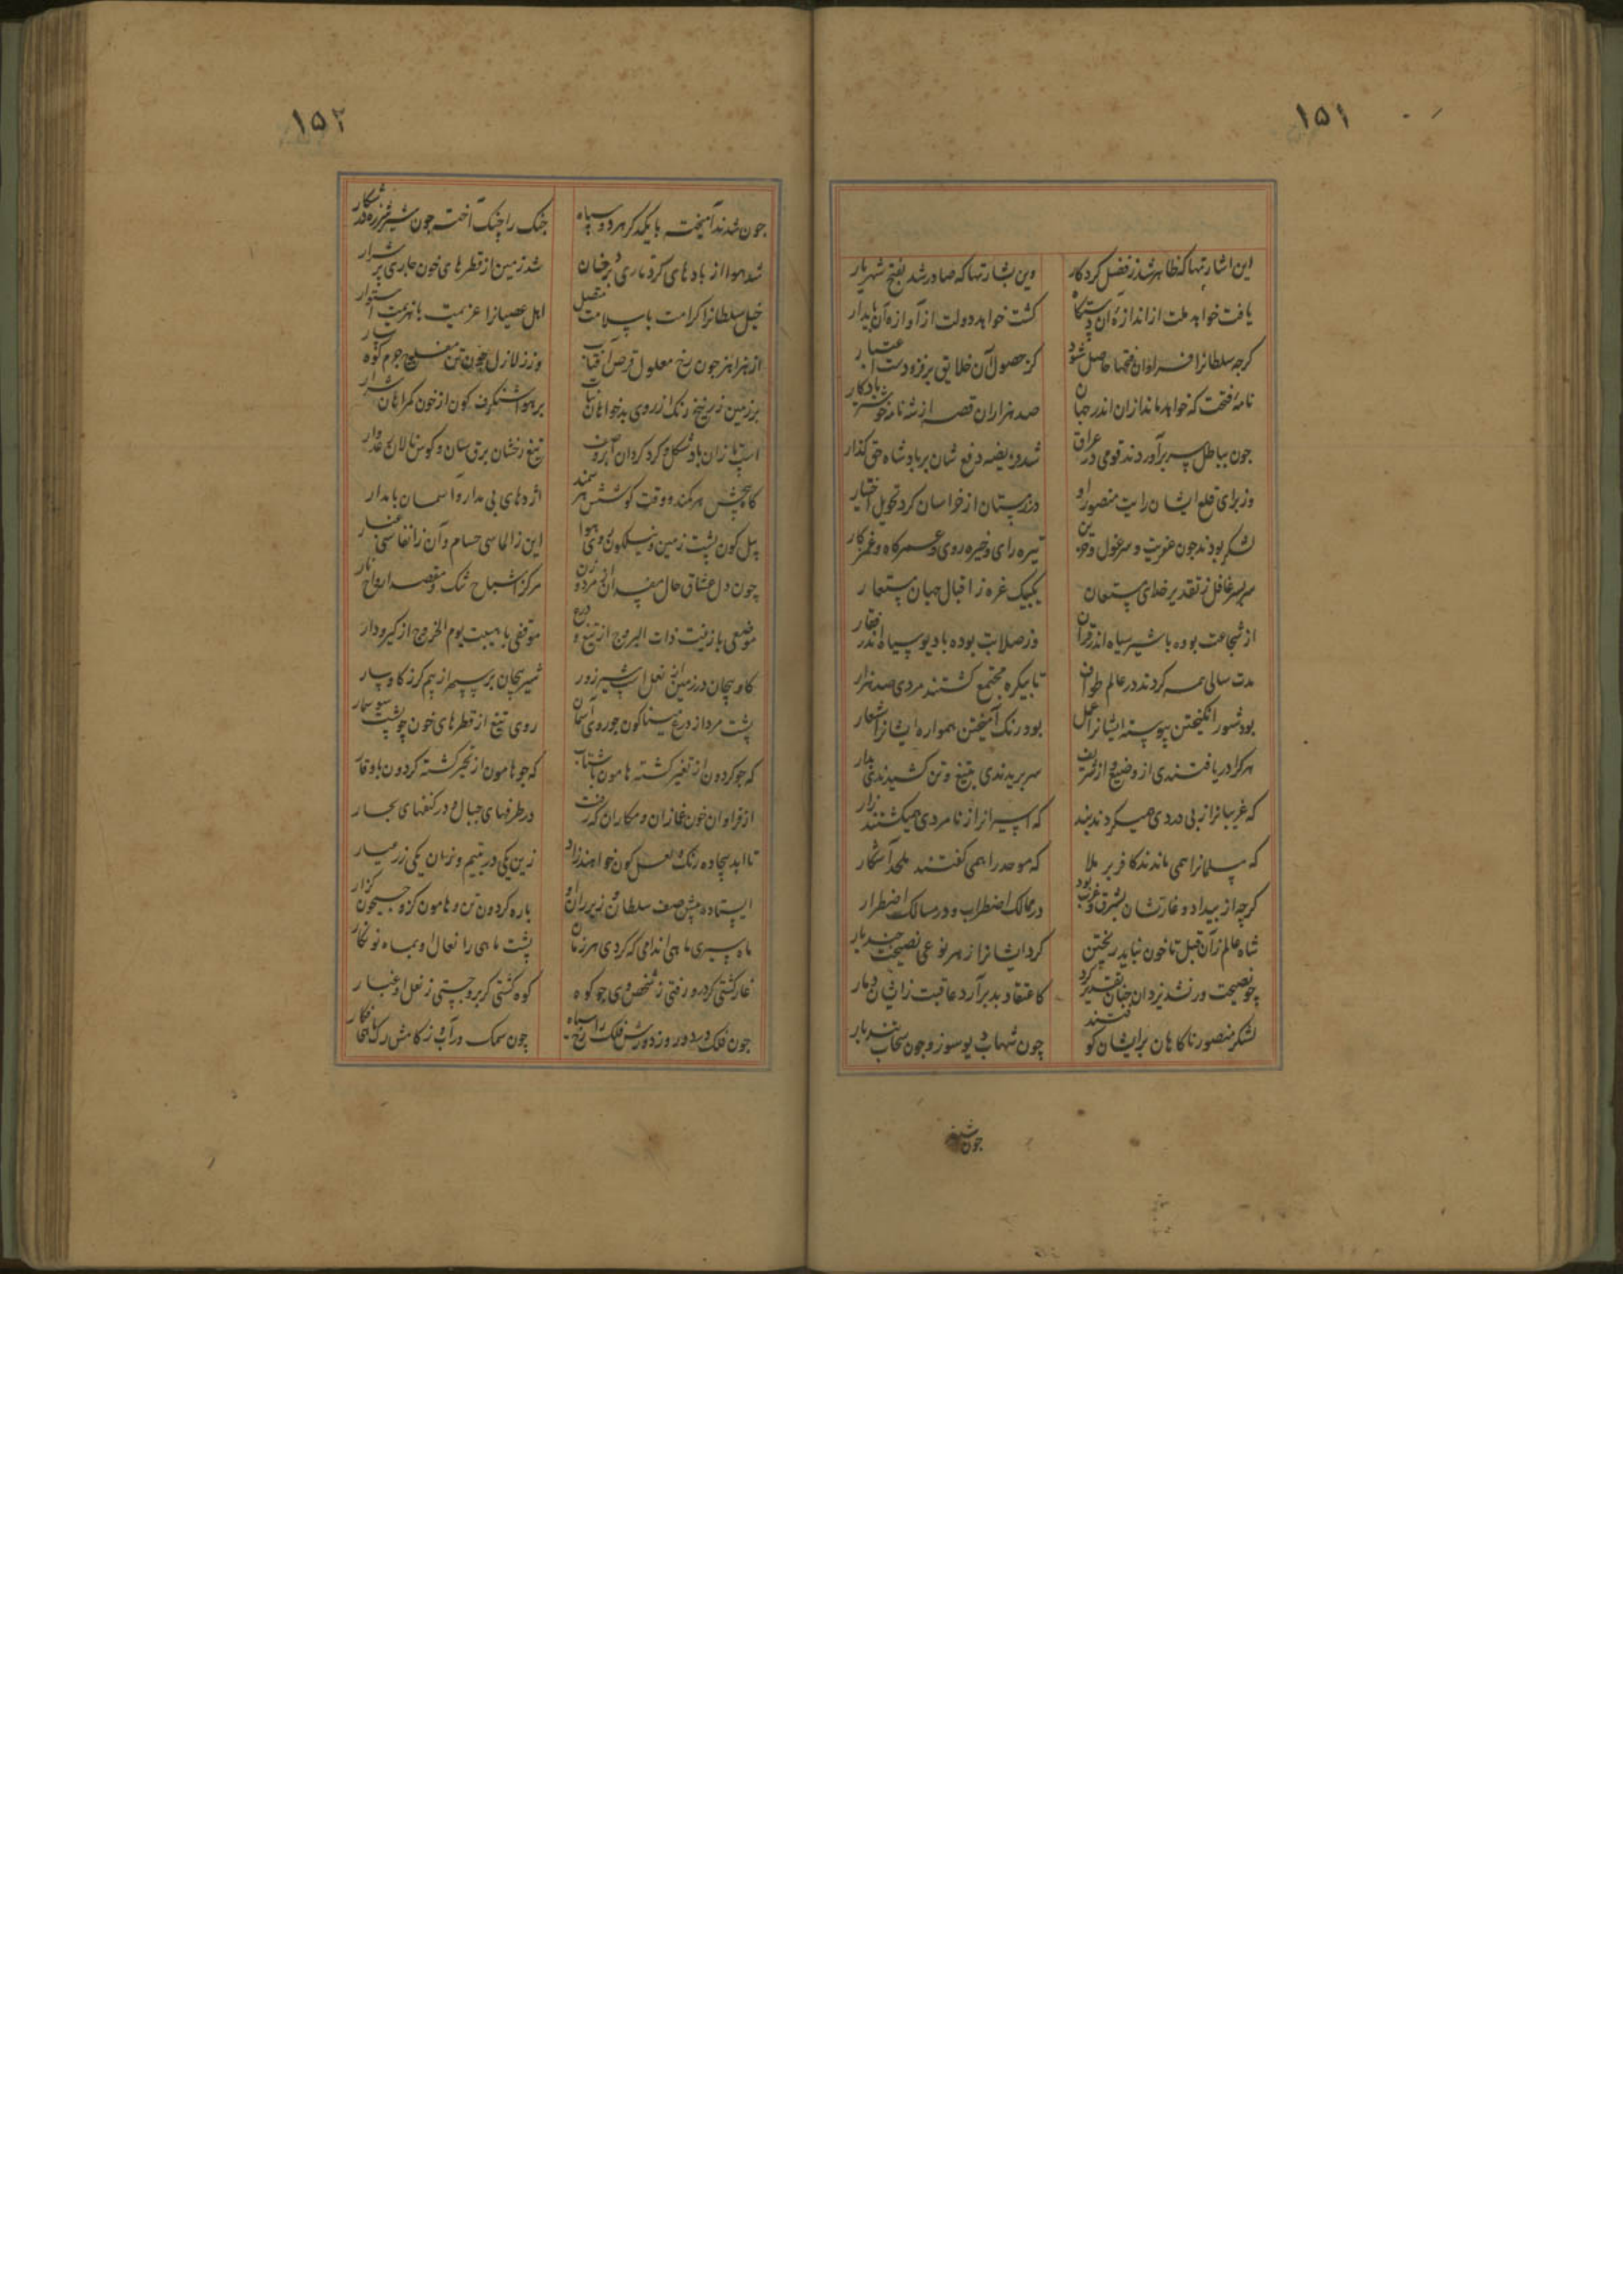 ۱۵۱
این اشارتها که ظاهر شد ز فضل کردکار
وین بشارتها که صادر شد بفتح شهریار
یافت خواهد ملت از اندازهٔ آن دستکاه
کشت خواهد دولت از آوازه آن پایدار
کرچه سلطانرا فراوان فتحها حاصل شود
کز حصول آن خلایق بر فزودست اعتبار
نامهٔ فتحت که خواهد ماند ازان اندر جهان
صد هزاران قصه از شه نامه خوشتر یادکار
چون بباطل سر برآوردند قومی در عراق
شد فریضه دفع شان بر پادشاه حق کذار
وز برای قلع ایشان رایت منصور او
در زمستان از خراسان کرد تحویل اختیار
لشکر بودند جون عفریت و سرغول و حزین
تیره رای و خیره روی و عمرکاه و غمز کار
سربسر غافل ز تقدیر خدای مستعان
یکبیک غره ز اقبال جهان مستعار
از شجاعت بوده با شیر سیاه اندر قران
وز صلابت بوده با دیو سپاه اندر قطار
مدت سالی همی کردند در عالم طواف
تا بیکره مجتمع کشتند مردی صد هزار
بود شور انکیختن پیوسته ایشانرا عمل
بود رنک آمیختن همواره ایشانرا شعار
هرکرا دریافتندی از وضیع و از شریف
سر بریدندی بتیغ و تن کشیدندی بدار
که غریبانرا ز بی دردی همیکردند بند
که اسیرانرا ز نامردی همیکشتند زار
که مسلمانرا همی ماندند کافر بر ملا
که موحد را همی کفتند ملحد آشکار
کرچه از بیداد و غارتشان بشرق و غرب بود
در ممالک اضطراب و در مسالک اضطرار
شاه عالم زآن قبل تا خون نباید ریختن
کرد ایشانرا ز هر نوعی نصیحت چند بار
چو نصیحت ور نشد یزدان چنان تقدیر کرد
کاعتقاد بد برآرد عاقبت زایشان دمار
لشکر منصور ناکاهان بر ایشان کوفتند
چون شهاب دیو سوز و جون سحاب تند بار
جون شدند
۱۵۲
جون شدند آمیخته با یکدکر هر دو سپاه
جنک را چنک آخته چون شیر شرزه در شکار
شد هوا از بادهای کرد تاری پر دخان
شد زمین از قطرهای خون جاری پر شرار
خیل سلطانرا کرامت با سلامت متصل
اهل عصیانرا عزیمت با هزیمت استوار
از هزاهز جون رخ معلول قرص آفتاب
وز زلازل چون تن مفلوج جرم کوهسار
بر زمین زرنیخ رنک از روی بدخواهان نبات
بر هوا شنکرف کون از خون کمراهان شرار
اسب تازان باد شکل و کرد کردان ابروصف
تیغ رخشان برق سان و کوس نالان رعدوار
کاه بخشش هر کمند و وقت کوشش هر سمند
اژدهای بی مدار و آسمان بامدار
پیل کون پشت زمین و نیلکون روی هوا
این ز الماسی حسام و آن ز انفاسی غبار
چون دل عشاق حال مفسدان از مرد و زن
مرکز اشباح تنک و مقصد ارواح تار
موضعی با زینت ذات البروج از تیغ و درع
موقفی با هیبت یوم الخروج از کیرودار
کاو پیچان در زمین از نعل اسب شیر زور
شیر پیچان بر سپهر از بیم کرز کاوسار
پشت مرد از درع مینا کون جو روی آسمان
روی تیغ از قطرهای خون چو پشت سوسمار
که جو کردون از تغیر کشته هامون با شتاب
که جو هامون از تحیر کشته کردون با وقار
از فراوان خون غمازان و مکاران که رفت
در طرفهای جبال و در کنفهای بحار
تا ابد بیجاده رنک و لعل کون خواهند زاد
زین یکی در یتیم و زان یکی زر عیار
ایستاده پیش صف سلطان و زیر ران او
باره کردون تن و هامون کز و جیحون کذار
ماه سیری ماهی اندامی که کردی هر زمان
پشت ماهی را نعال او بماه نو نکار
غار کشتی کر درو رفتی ز شخص وی جو کوه
کوه کشتی کر بروجستی ز نعل او غبار
جون فلک
چون سمک در آب